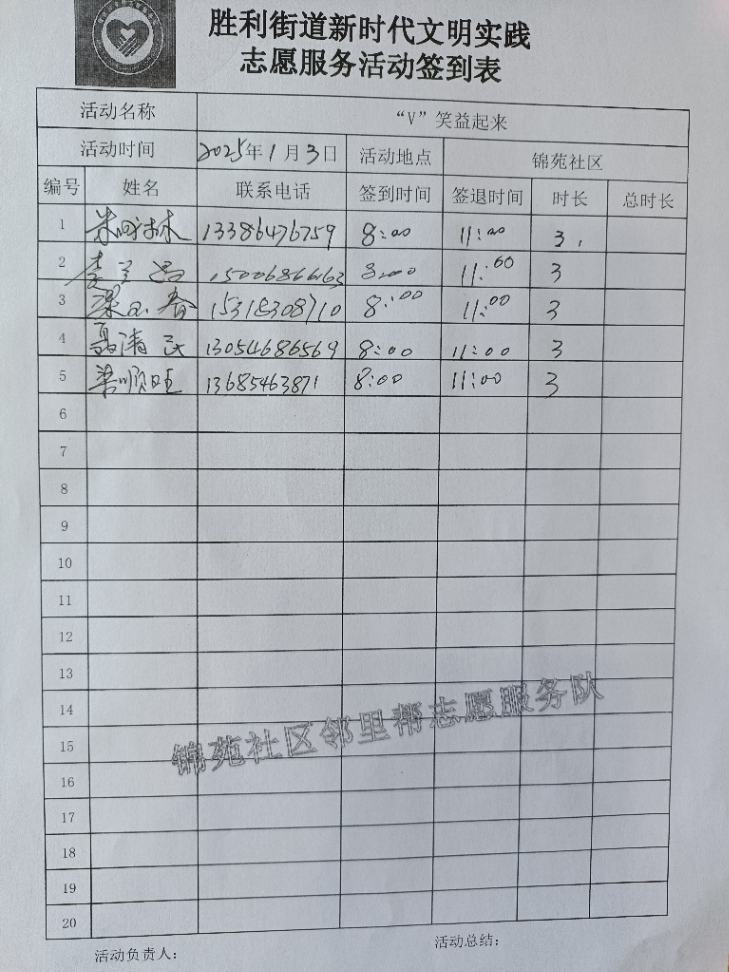 胜利街道新时代文明实践
志愿服务活动签到表
活动名称 “V”笑益起来
活动时间 2025年1月3日 活动地点 锦苑社区
编号 姓名 联系电话 签到时间 签退时间 时长 总时长
1 林 13386476759 8:00 11:00 3
2 李 8:00 11:00 3
3 春 8:00 11:00 3
4 聂清 13054686569 8:00 11:00 3
5 梁顺旺 13685463871 8:00 11:00 3
6
7
8
9
10
11
12
13
14
锦苑社区邻里帮志愿服务队
15
16
17
18
19
20
活动负责人： 活动总结：